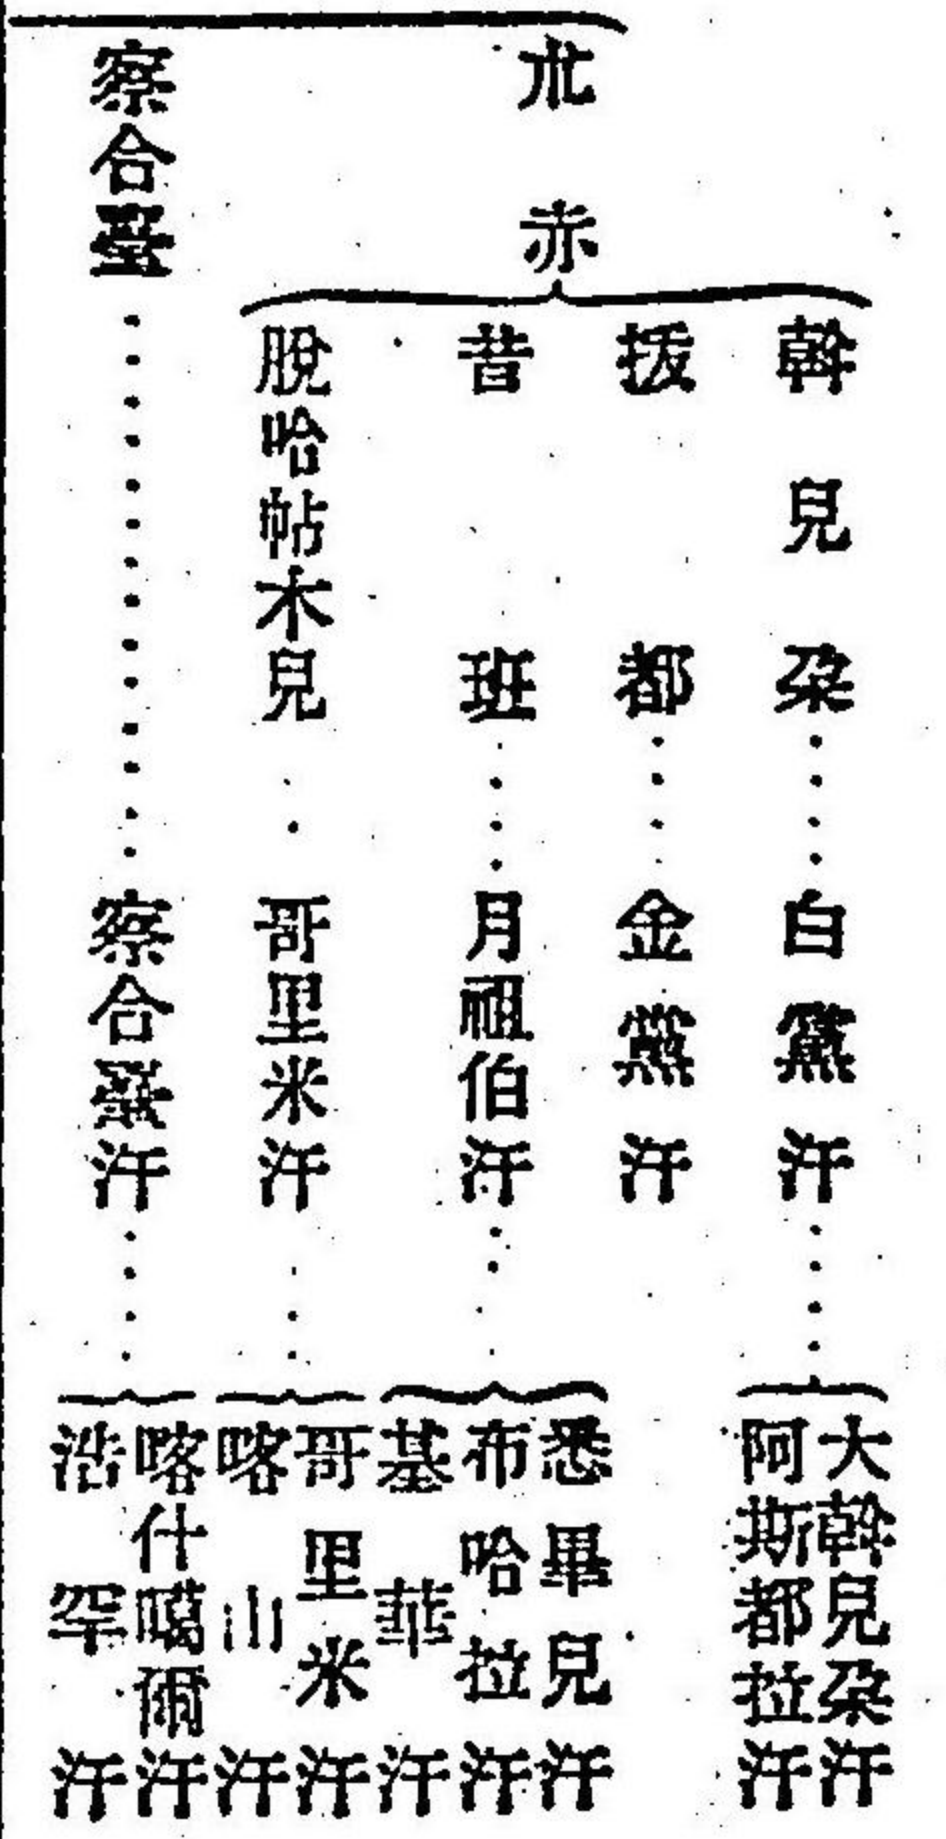 朮赤
斡兒朶
白黨汗
大斡兒朶汗
阿斯都拉汗
拔都
金黨汗
昔班
月祖伯汗
悉畢兒汗
布哈拉汗
基華汗
脫哈帖木兒
哥里米汗
哥里米汗
喀山汗
察合臺
察合臺汗
喀什噶爾汗
浩罕汗